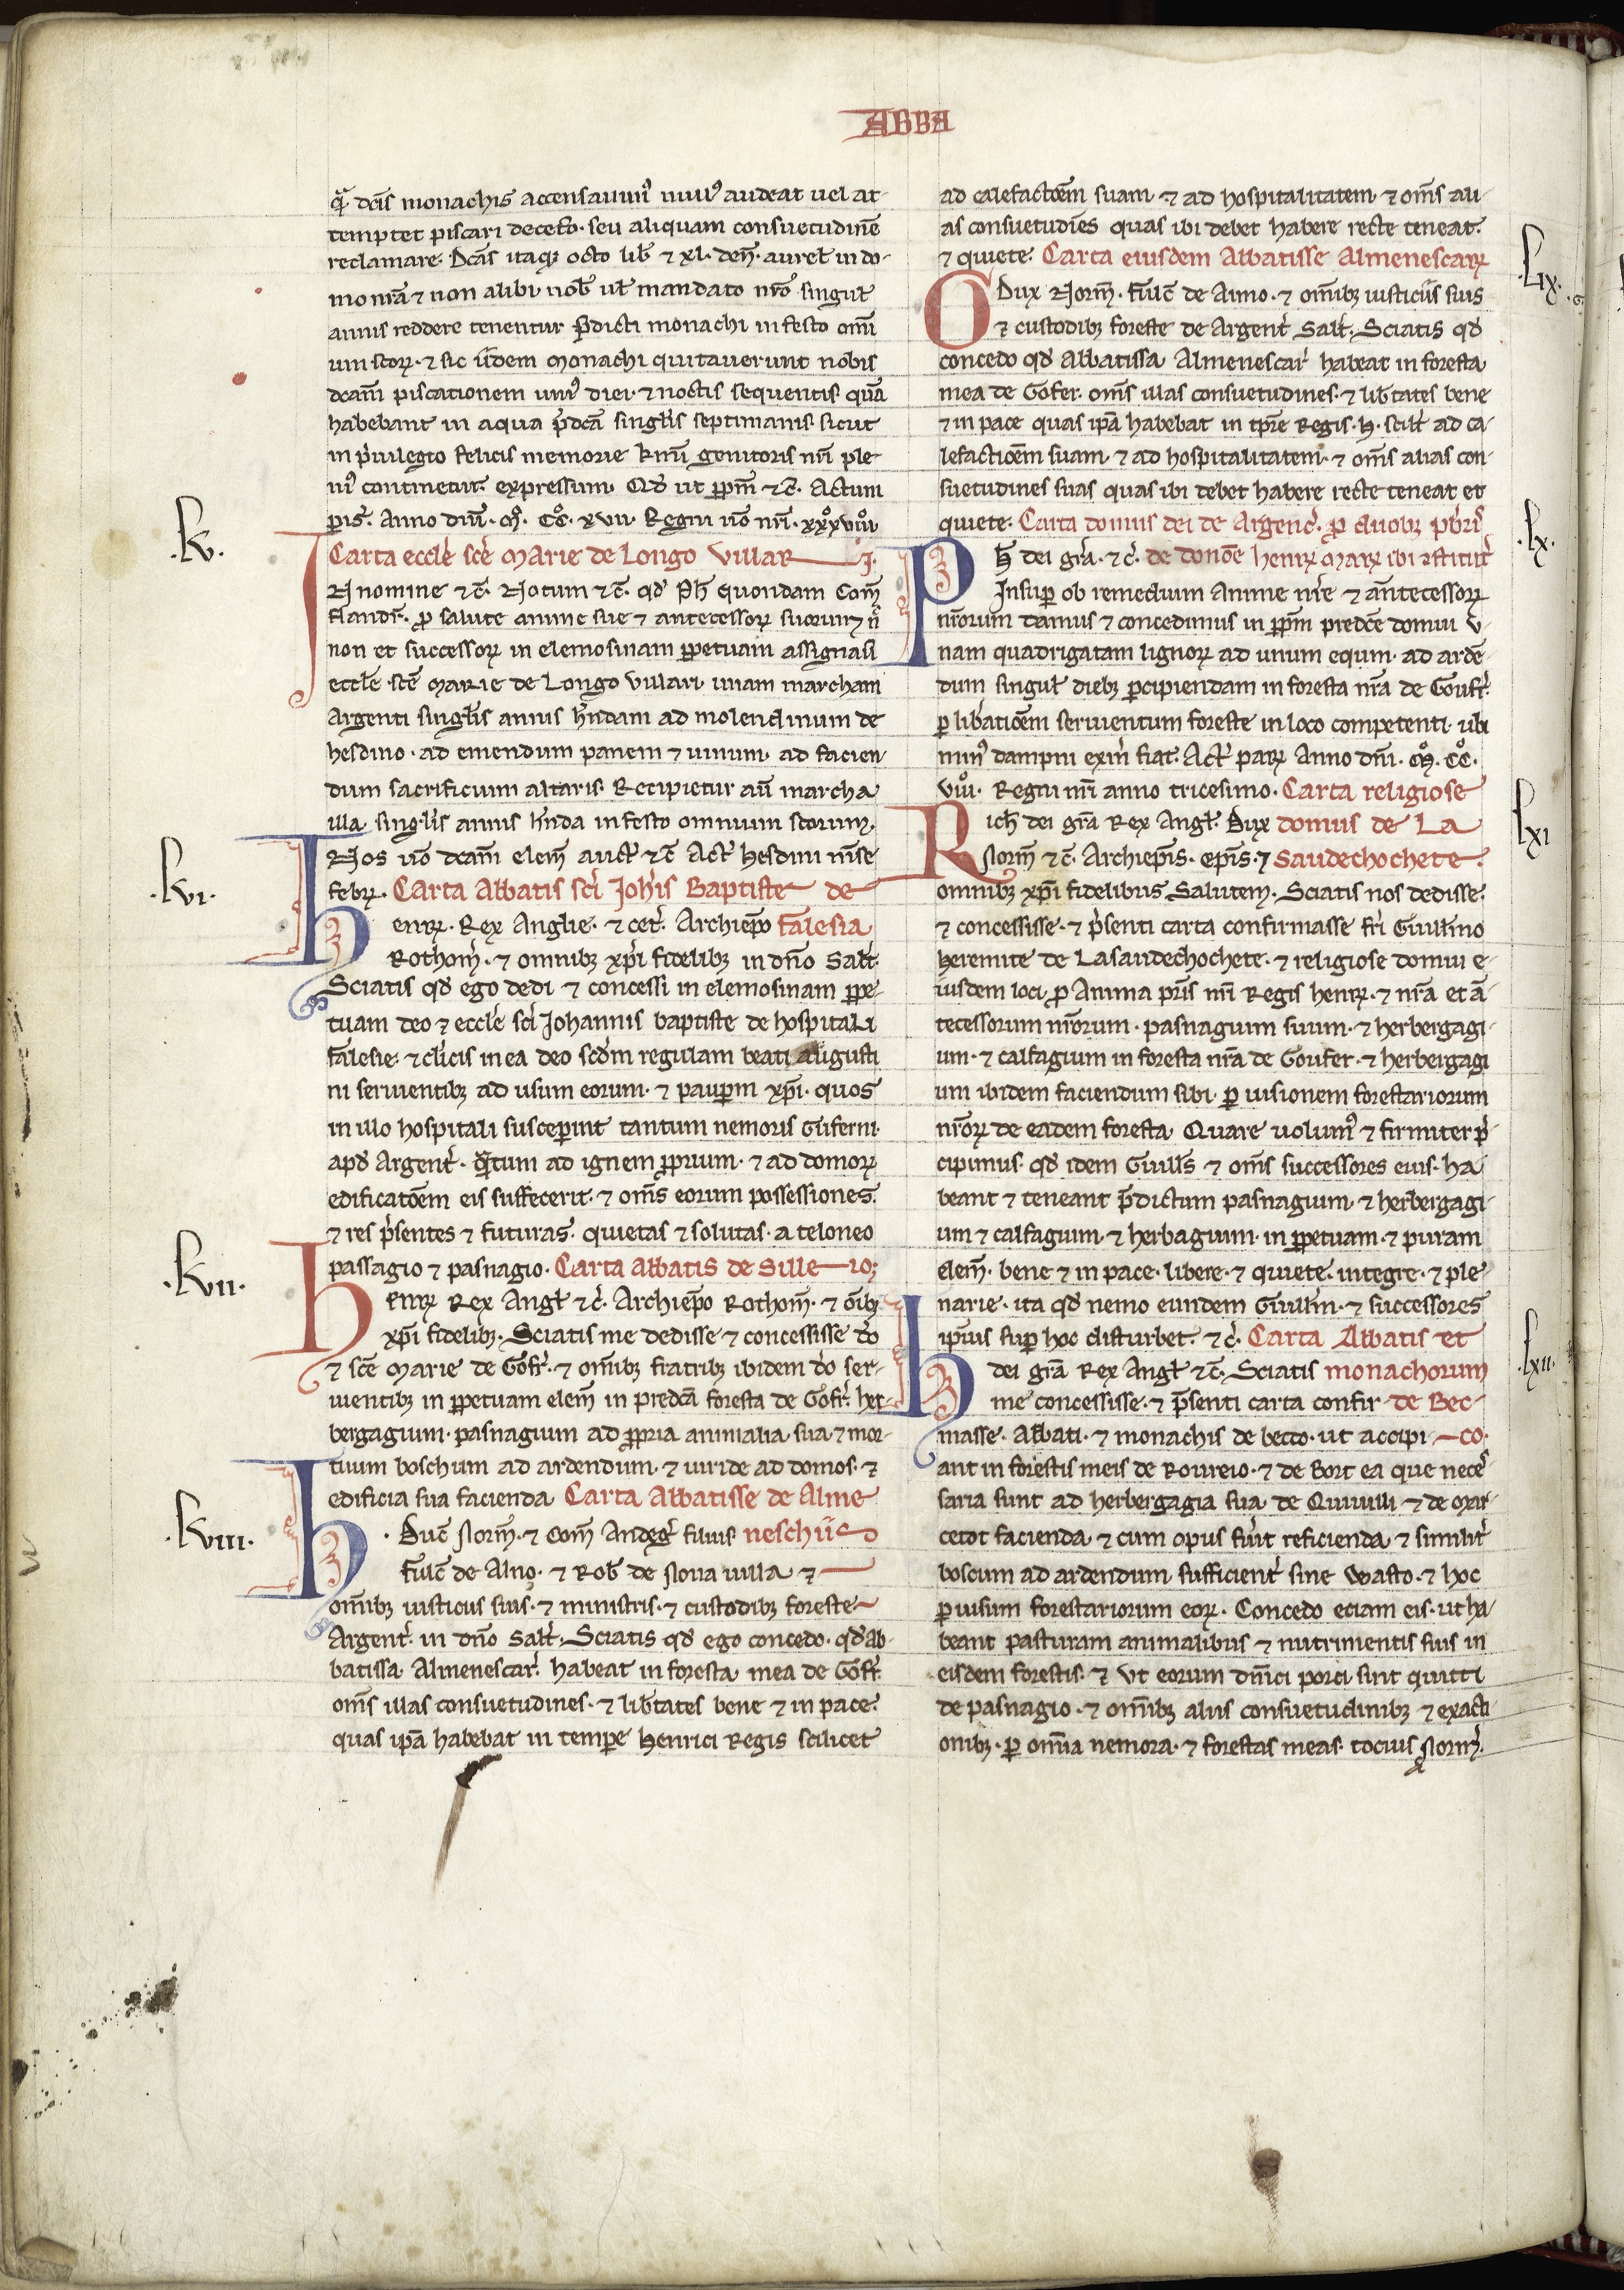 ABBA
q̄ dc̄is monachis accensauim⁹ null⁹ audeat uel at-
temptet piscari decet᷒o. seu aliquam consuetudinē
reclamare. Dc̄as itaqꝫ octo lib̄ ⁊ xl. deñ. aurel̄ in do-
mo nr̄a ⁊ non alibi nob̄ ul̄ mandato nr̄o singul̄
annis reddere tenentur p̄dicti monachi in festo omī
um sc̄oꝝ. ⁊ sic iīdem monachi quitauerunt nobis
dc̄am piscationem uni⁹ diei. ⁊ noctis sequentis. quā
habebant in aqua p̄dc̄a singl̄is septimanis. sicut
in p̄uilegio felicis memorie kmī genitoris nr̄i ple-
ni⁹ continetur. expressum. Qd̄ ut ꝑpm̄ ⁊c̄. Actum
par̄. Anno dn̄i. M̊. CC̊. xvii. Regni uō nr̄i. xxxviii.
.lv.
Carta eccl̄e sc̄e Marie de Longo villari.
IN nomine ⁊c̄. Notum ⁊c̄. qd̄ Ph̄ quondam Com̄
flandr̄. ꝓ salute anime sue ⁊ antecessoꝝ suorum ⁊ n̄
non et successoꝝ in elemosinam ꝑpetuam assignasi
eccl̄ie sc̄e Marie de Longo villari unam marcham
Argenti singl̄is annis hn̄dam ad molendinum de
hesdino. ad emendum panem ⁊ uinum. ad facien-
dum sacrificium altaris. Recipietur aū marcha
illa singl̄is annis hn̄da in festo omnium sc̄orum.
Nos uō dc̄am elem̄ auct̄ ⁊c̄ Act̄ hesdini m̄se
.lvi.
febꝝ. Carta Abbatis sc̄i Joh̄is Baptiste de
Henrꝝ. Rex Anglie. ⁊ cet̄. Archiep̄o falesia
Rothom̄. ⁊ omnibꝫ xp̄i fidelibꝫ in dn̄o Salt̄.
Sciatis qd̄ ego dedi ⁊ concessi in elemosinam ꝑpe-
tuam deo ⁊ eccl̄e sc̄i Johannis baptiste de hospitali
falesie. ⁊ cl̄icis in ea deo scd̄m regulam beati augusti
ni seruientibꝫ ad usum eorum. ⁊ pauꝑm xp̄i. quos
in illo hospitali susceꝑint tantum nemoris Guferni.
apd̄ Argent̄. q̄ntum ad ignem ꝓprium. ⁊ ad domoꝝ
edificatōem eis suffecerit. ⁊ om̄s eorum possessiones.
⁊ res p̄sentes ⁊ futuras. quietas ⁊ solutas. a teloneo
.lvii.
passagio ⁊ pasnagio. Carta Abbatis de Sille
Henrꝝ Rex Angl̄ ⁊c̄. Archiep̄o Rothom̄. ⁊ ōibꝫ
xp̄i fidelibꝫ. Sciatis me dedisse ⁊ concessisse d̄o
⁊ sc̄e Marie de Gof̄r. ⁊ om̄ibꝫ fratribꝫ ibidem d̄o ser-
uientibꝫ in ꝑpetuam elem̄ in predc̄a foresta de Gof̄r. her-
bergagium. pasnagium ad ꝓpria animalia sua ⁊ mor-
tuum boschum ad ardendum. ⁊ uiride ad domos. ⁊
edificia sua facienda Carta Abbatisse de Alme
.lviii.
H. Duc̄ Norm̄. ⁊ Com̄ Andeḡ filius neschiis
fulc̄ de Alno. ⁊ Rob̄ de Noua uilla ⁊
om̄ibꝫ iusticiis suis. ⁊ ministris. ⁊ custodibꝫ foreste
Argent̄. in dn̄o Salt̄. Sciatis qd̄ ego concedo. qd̄ ab-
batissa Almenescar̄. habeat in foresta mea de Gof̄r.
om̄s illas consuetudines. ⁊ lib̄tates bene ⁊ in pace.
quas ip̄a habebat in temꝑe Henrici Regis scilicet
ad calefactōem suam. ⁊ ad hospitalitatem. ⁊ om̄s ali-
as consuetudīes quas ibi debet habere recte teneat.
.lix.
⁊ quiete. Carta eiusdem Abbatisse Almenescaꝝ
O Dux Norm̄. fulc̄ de Anno. ⁊ om̄ibꝫ iusticiis suis
⁊ custodibꝫ foreste de Argent̄ Salt̄. Sciatis qd̄
concedo qd̄ Abbatissa Almenescar̄ habeat in foresta
mea de Gofer. om̄s illas consuetudines. ⁊ lib̄tates bene
⁊ in pace quas ip̄a habebat in tp̄re Regis. H. scilt̄ ad ca-
lefactiōem suam. ⁊ ad hospitalitatem. ⁊ om̄s alias con-
suetudines suas quas ibi debet habere recte teneat et
.lx.
quiete. Carta domus dei de Argenc̄. ꝓ duobꝫ pb̄ris
Ph̄ dei gr̄a. ⁊c̄. de donōe henrꝝ Maꝝ ibi ꝯstitut̄
Insuꝑ ob remedium Anime nr̄e ⁊ ān̄tecessoꝝ
nr̄orum damus ⁊ concedimus in ꝑpm̄ predc̄e domui v-
nam quadrigatam lignoꝝ ad unum equm. ad arden-
dum singul̄ diebꝫ ꝑcipiendam in foresta nr̄a de Gouf̄r.
ꝑ lib̄atiōem seruientum foreste in loco competenti. ubi
min⁹ dampni exin̄ fiat. Act̄ paꝝ Anno dn̄i. M̊. CC̊.
.lxi.
viii̊. Regni nr̄i anno tricesimo. Carta religiose
Rich̄ dei gr̄a Rex Angl̄. Dux domus de La
Norm̄ ⁊c̄. Archiep̄is. ep̄is. ⁊ Saudechochete.
omnibꝫ xp̄i fidelibus Salutem. Sciatis nos dedisse.
⁊ concessisse. ⁊ p̄senti carta confirmasse fr̄i Guillmo
heremite de Lasaudechochete. ⁊ religiose domui e-
iusdem loci ꝓ Anima pr̄is nr̄i Regis henrꝝ. ⁊ nr̄a et ā-
tecessorum nr̄orum. pasnagium suum. ⁊ herbergagi-
um. ⁊ calfagium in foresta nr̄a de Goufer. ⁊ herbergagi
um ibidem faciendum sibi. ꝑ uisionem forestariorum
nr̄oꝝ de eadem foresta Quare uolum⁹ ⁊ firmiter p̄-
cipimus. qd̄ idem Guill̄s ⁊ om̄s successores eius. ha
beant ⁊ teneant p̄dictum pasnagium. ⁊ herbergagi-
um ⁊ calfagium. ⁊ herbagium. in ꝑpetuam. ⁊ puram
elem̄. bene ⁊ in pace. libere. ⁊ quiete. integre. ⁊ ple-
narie. ita qd̄ nemo eundem Guillm̄. ⁊ successores
.lxii.
ip̄ius suꝑ hoc disturbet. ⁊c̄. Carta Abbatis et
H dei gr̄a Rex Angl̄ ⁊c̄. Sciatis monachorum
me concessisse. ⁊ p̄senti carta confir- de Bec-
masse. Abbati. ⁊ monachis de becco. ut accipi- co.
ant in forestis meis de Roureio. ⁊ de Bort ea que neces-
saria sunt ad herbergagia sua de Quiuilli ⁊ de Mar-
cetot facienda. ⁊ cum opus fuīt reficienda. ⁊ similit̄
boscum ad ardendum sufficient̄ sine Wasto. ⁊ hoc
ꝑ uisum forestariorum eoꝝ. Concedo eciam eis. ut ha-
beant pasturam animalibus ⁊ nutrimentis suis in
eisdem forestis. ⁊ Vt eorum dn̄ici porci sint quitti
de pasnagio. ⁊ om̄ibꝫ aliis consuetudinibꝫ ⁊ exacti-
onibꝫ. ꝑ om̄ia nemora. ⁊ forestas meas. tocius Norm̄.